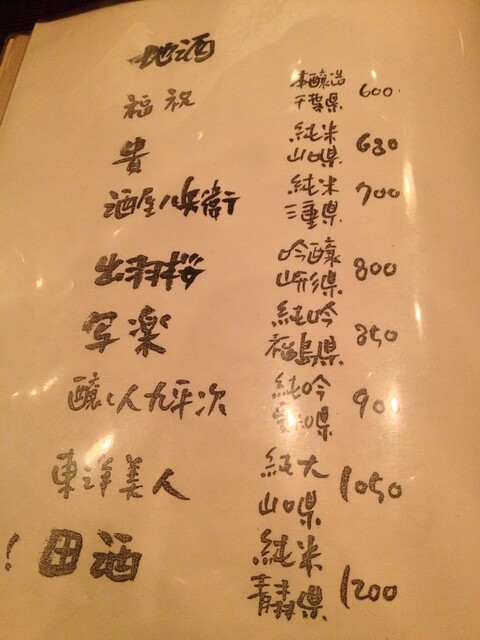 地酒
福祝 本醸造 千葉県 600
貴 純米 山口県 680
酒屋八兵衛 純米 三重県 700
出羽桜 吟醸 山形県 800
写楽 純吟 福島県 850
醸し人九平次 純吟 愛知県 900
東洋美人 純大 山口県 1050
! 田酒 純米 青森県 1200